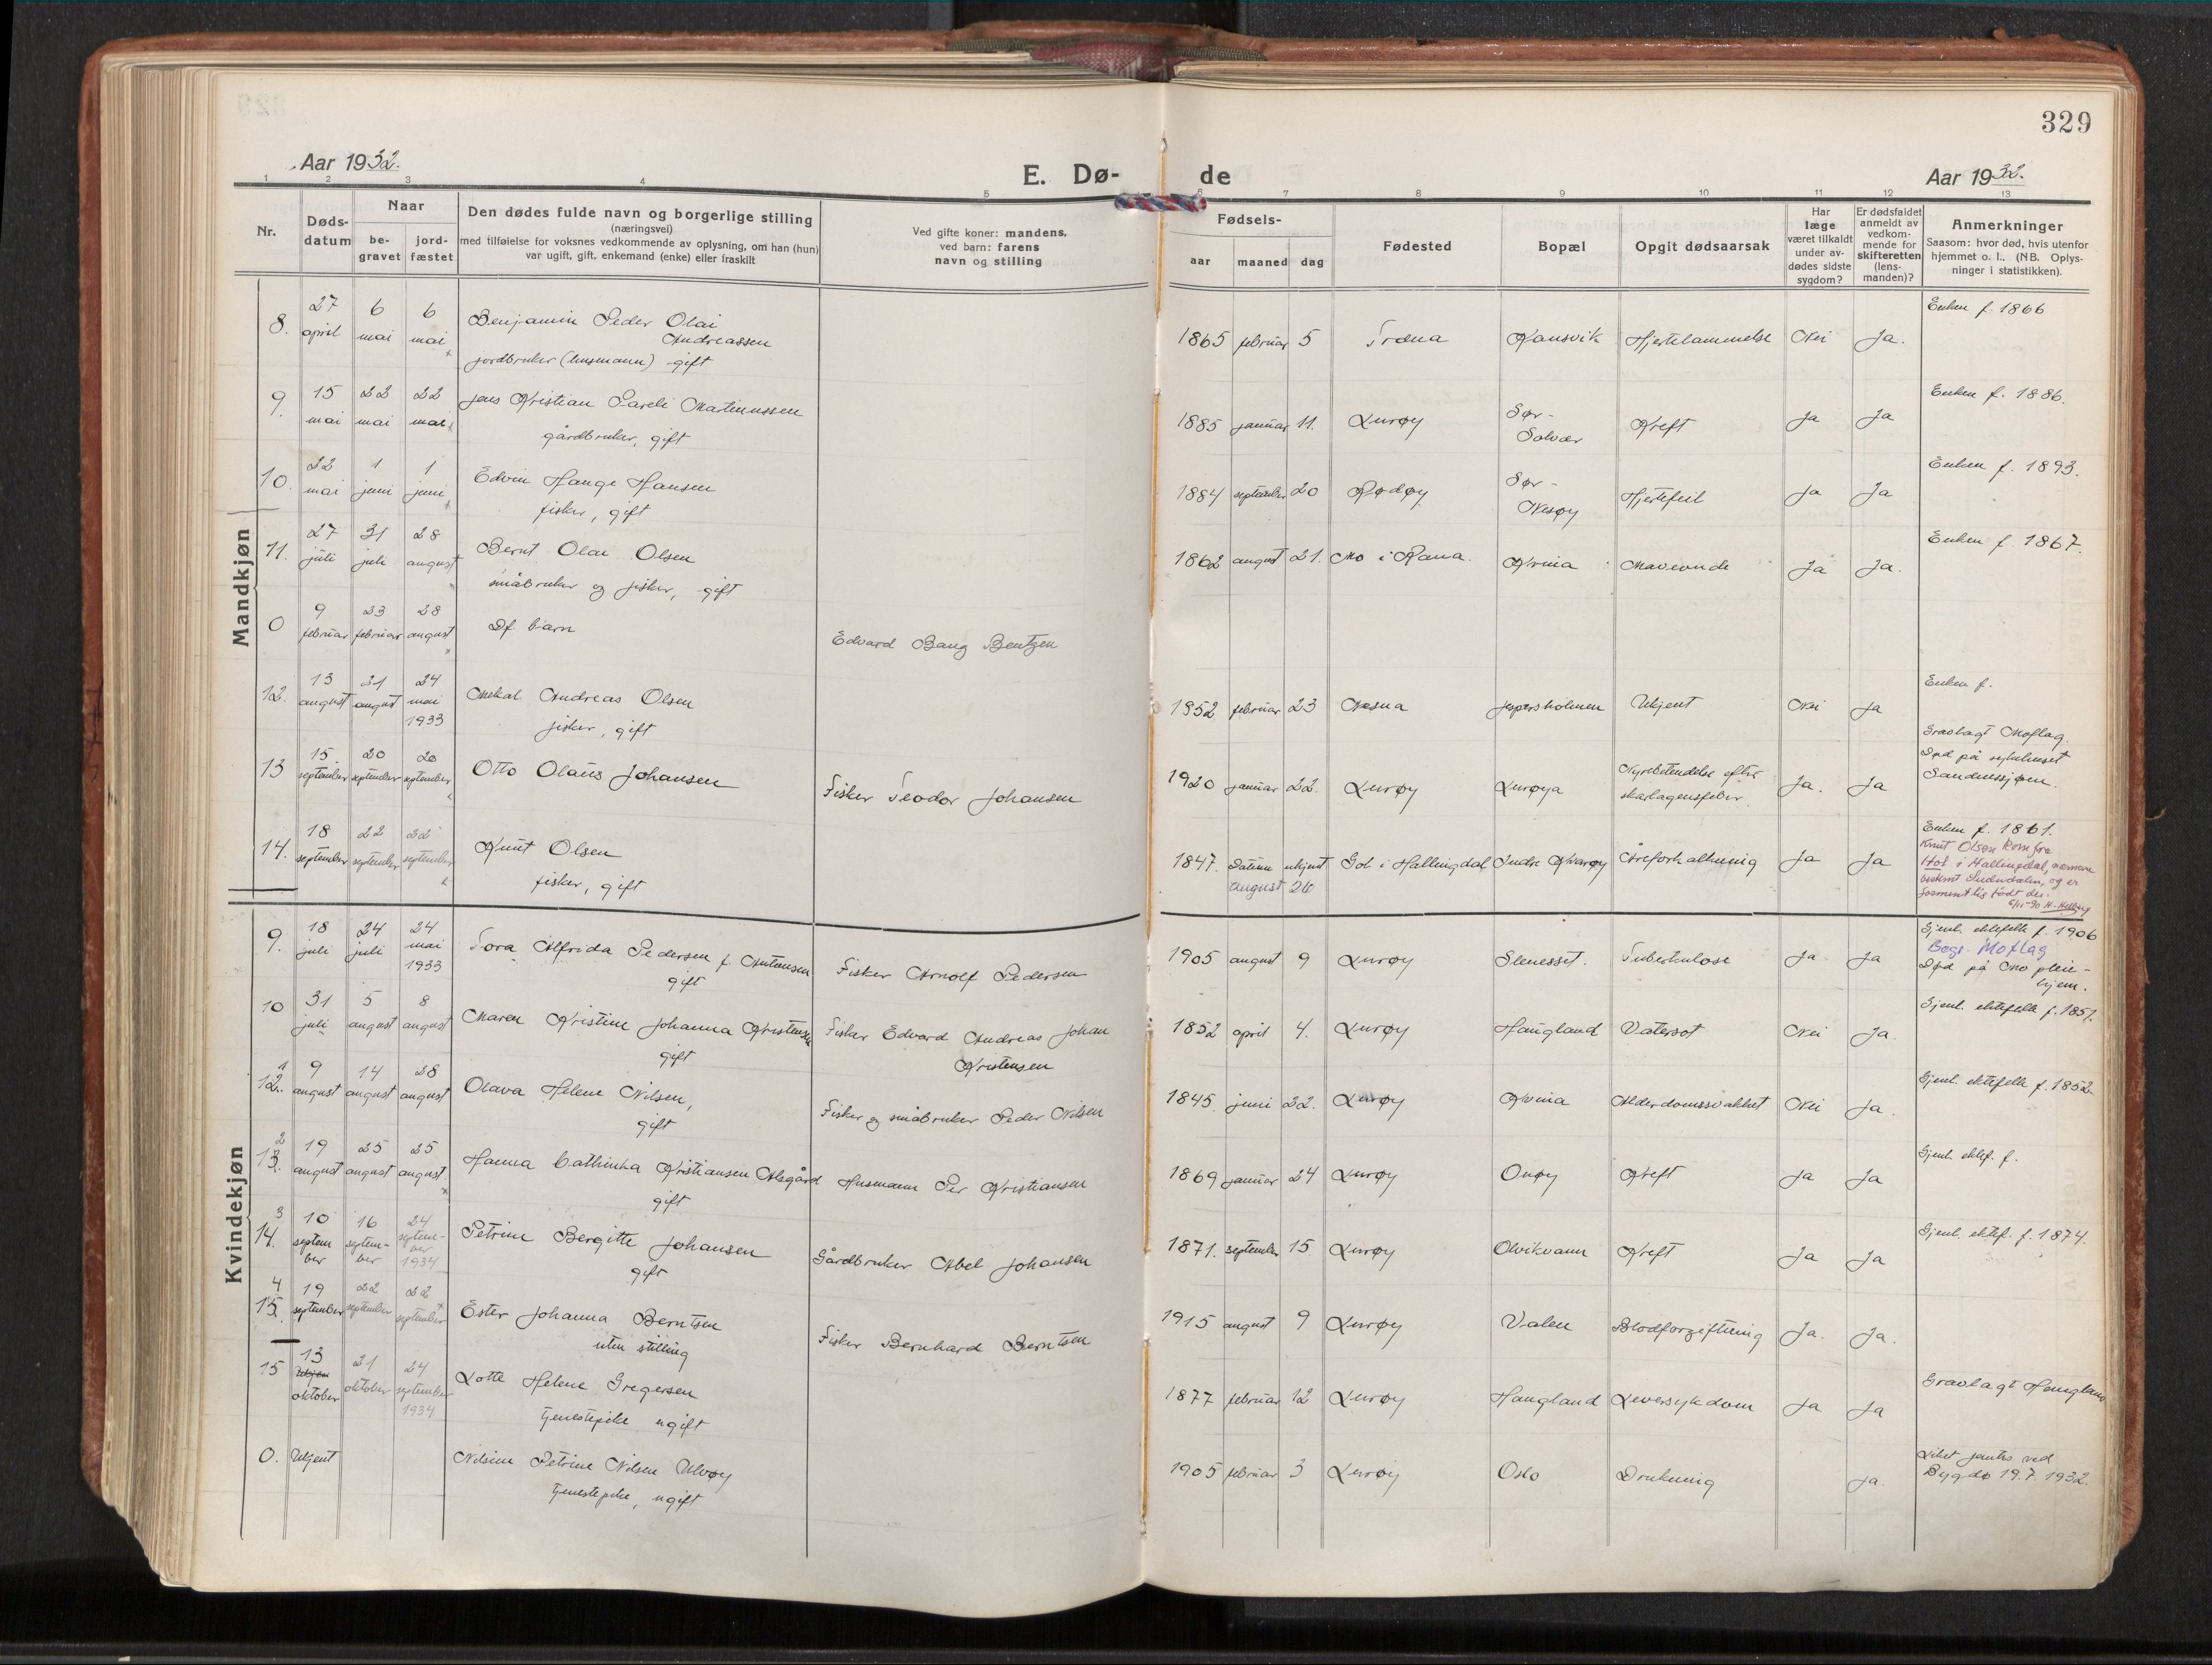 329
Aar 1932.
E. Dø-
de
Aar 1932.
1 2 3 4 5 6 7 8 9 10 11 12 13
Nr.
Døds-
datum
Naar
be-
gravet
jord-
fæstet
Den dødes fulde navn og borgerlige stilling
(næringsvei)
med tilføielse for voksnes vedkommende av oplysning, om han (hun)
var ugift, gift, enkemand (enke) eller fraskilt
Ved gifte koner: mandens,
ved barn: farens
navn og stilling
Fødsels-
aar
maaned
dag
Fødested
Bopæl
Opgit dødsaarsak
Har
læge
været tilkaldt
under av-
dødes sidste
sygdom?
Er dødsfaldet
anmeldt av
vedkom-
mende for
skifteretten
(lens-
manden)?
Anmerkninger
Saasom: hvor død, hvis utenfor
hjemmet o. l., (NB. Oplys-
ninger i statistikken).
Mandkjøn
8. 27 april 6 mai 6 mai Benjamin Peder Olai
Andreassen
jordbruker (husmann) gift
1865 februar 5 Træna Kansvik Hjertelammelse Nei Ja.
Enken f. 1866
9. 15 mai 22 mai 22 mai Jens Kristian Pareli Martinussen
gårdbruker, gift
1885 januar 11. Lurøy Sør-
Solvær Kreft Ja Ja
Enken f. 1886.
10. 22 mai 1 juni 1 juni Edvin Hauge Hansen
fisker, gift
1884 september 20 Rødøy Sør-
Nesøy Hjertefeil Ja Ja
Enken f. 1893.
11. 27 juli 31 juli 28 august Bernt Olai Olsen
småbruker og fisker, gift
1862 august 21. Mo i Rana. Kvina Maveonde Ja Ja.
Enken f. 1867.
0 9 februar 23 februar 28 august Df barn
Edvard Bang Bentzen
12. 13 august 21 august 24 mai 1933 Mekal Andreas Olsen
fisker, gift
1852 februar 23 Nesna Jespersholmen Ukjent Nei Ja
Enken f.
13 15 september 20 september 20 september Otto Olaus Johansen
Fisker Teodor Johansen
1920 januar 22. Lurøy Lurøya Nyrebetendelse efter
skarlagensfeber. Ja. Ja
Gravlagt Moflag.
Død på sykehuset
Sandnessjøen.
14. 18 september 22 september 22 september Knut Olsen
fisker, gift
1847. Datum ukjent
august 26
Gol i Hallingdal Indre Kvarøy Åreforkalkning Ja Ja
Enken f. 1861.
Knut Olsen kom fra
Hol i Hallingdal, nærmere
bestemt Sudndalen, og er
født der.
Kvindekjøn
9. 18 juli 24 juli 24 mai 1933 Tora Alfrida Pedersen f. Antonsen
gift
Fisker Arnolf Pedersen
1905 august 9 Lurøy Slenesset. Tuberkulose Ja Ja
Gjenl. ektefelle f. 1906
Begr. Moflag
Død på Mo pleie-
hjem.
10 31 juli 5 august 8 august Maren Kristine Johanna Kristensen
gift
Fisker Edvard Andreas Johan
Kristensen
1852 april 4. Lurøy Haugland Vatersot Nei Ja.
Gjenl. ektefelle f. 1851.
1
12. 9 august 14 august 28 august Olava Helene Nilsen,
gift
Fisker og småbruker Peder Nilsen
1845 juni 22. Lurøy Kvina Alderdomssvakhet Nei Ja.
Gjenl. ektefelle f. 1852.
2
13. 19 august 25 august 25 august Hanna Cathinka Kristiansen Alsgård
gift
Husmann Per Kristiansen
1869 januar 24 Lurøy Onøy Kreft Ja Ja
Gjenl. ektef. f.
3
14. 10 septem
ber 16 septem-
ber 24 septem-
ber 1934 Petrine Bergitte Johansen
gift
Gårdbruker Abel Johansen
1871. september 15 Lurøy Olvikvann Kreft Ja Ja
Gjenl. ektef. f. 1874.
4
15. 19 september 22 september 22 september Ester Johanna Berntsen
uten stilling
Fisker Bernhard Berntsen
1915 august 9 Lurøy Valen Blodforgiftning Ja. Ja.
15 13 oktober 21 oktober 24 september 1934 Lotte Helene Gregersen
tjenestepike ugift
1877 februar 12 Lurøy Haugland Leversykdom Ja Ja
Gravlagt Haugland
0. Ukjent Nilsine Petrine Nilsen Ulvøy
tjenestepike, ugift
1905 februar 3 Lurøy Oslo Drukning Ja.
Liket funnet ved
Bygdø 19.7.1932.